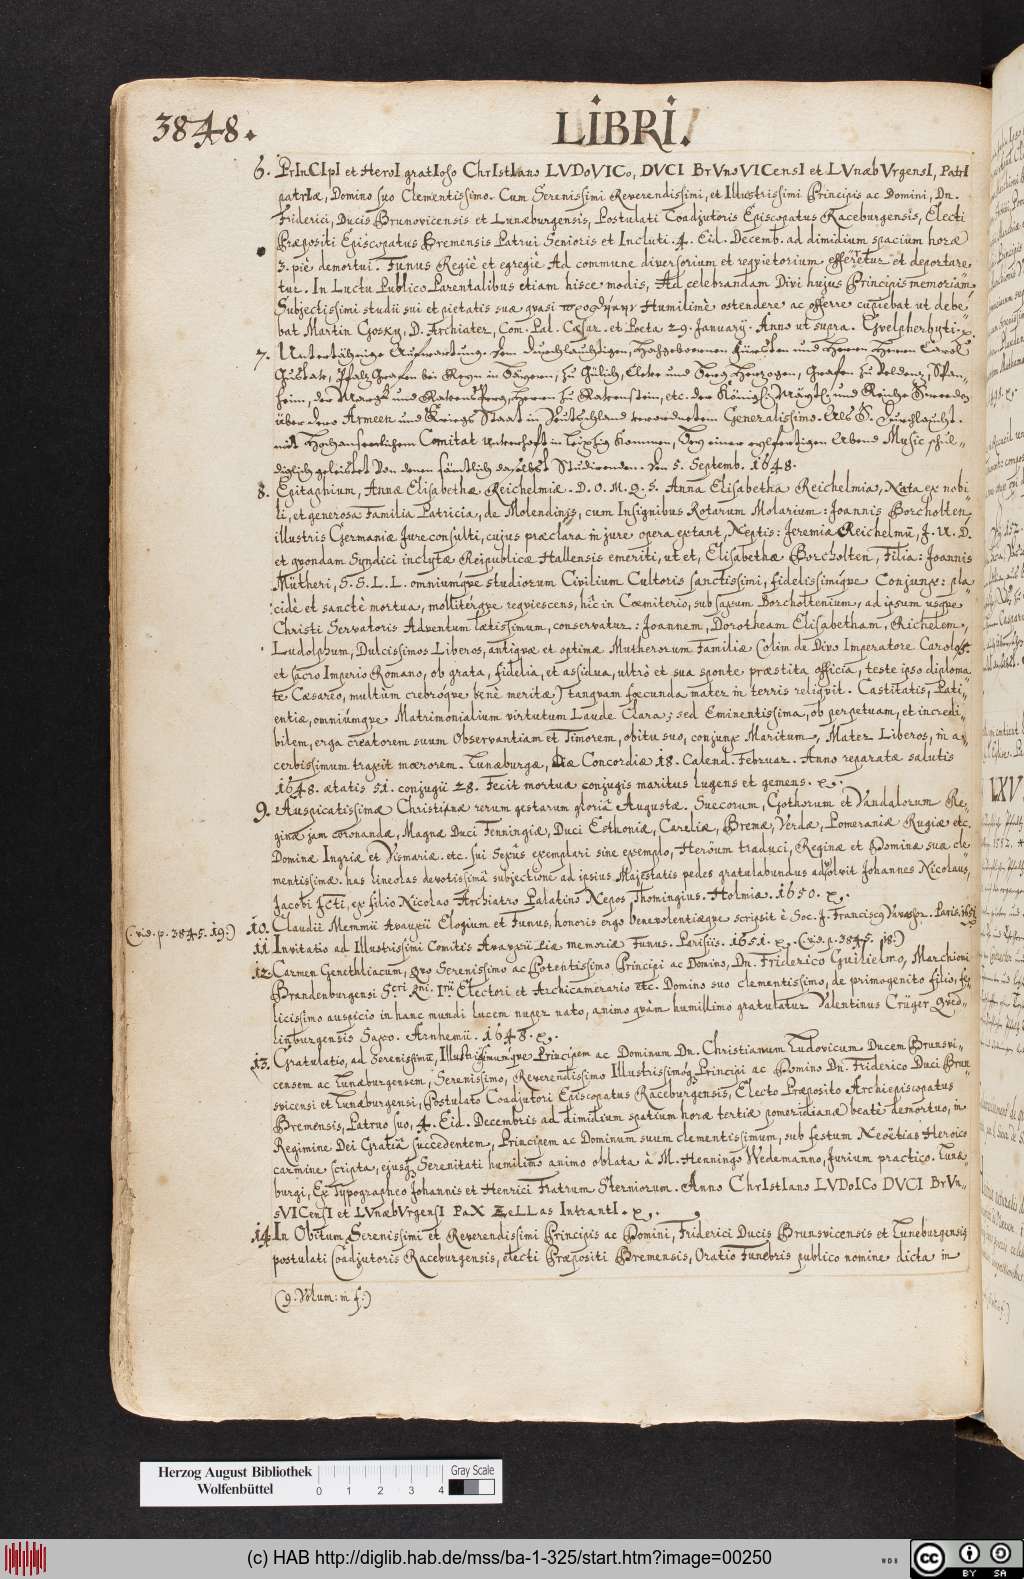 3848.
LIBRI.
6. PrInCIpI et HeroI gratIoso ChrIstIano LVDoVICo, DVCI BrVnoVICensI et LVnæbVrgensI, PatrI
patrIæ, Domino suo Clementissimo. Cum Serenissimi Reverendissimi, et Illustrissimi Principis ac Domini, Dn.
Friderici, Ducis Brunovicensis et Lunæburgensis, Postulati Coadjutoris Episcopatus Raceburgensis, Electi
Præpositi Episcopatus Bremensis Patrui Senioris et Incluti. 4. Eid. Decemb. ad dimidium spacium horæ
3. piè demortui. Funus Regiè et egregiè Ad commune diversorium et reqvietorium efferetur et deportare
tur. In Luctu Publico Parentalibus etiam hisce modis, Ad celebrandam Divi hujus Principis memoriam
Subjectissimi studii sui et pietatis suæ qvasi Humilimè ostendere ac offerre cupiebat ut debe
bat Martin Gosky, D. Archiater, Com. Pal. Cæsar. et Poeta 29. January. Anno ut supra. Gvelpherbyti.
7. Untertähnige Aufwartung. dem durchlauchtigen, Hochgebornen Fürsten und Herren Herren Carol
Gustav, Pfaltz Grafen bei Reyn in Bäyern, zu Gülich, Cleve und Berg Hertzogen, Grafen zu Veldentz, Span-
heim, der Marck und Ravensperg, Herren zu Ravenstein, etc. der Königl: Mäytt: und Reiche Schweden
über dero Armeen und Kriegs Staat in Teutschland verordnetem Generalissimo. Als S. Durchlaucht.
mit Hochansehnlichem Comitat unverhofft in Leipzig kommen, Bey einer eylfertigen Abend Music schül-
diglich geleistet Von denen sämtlich daselbst Studirenden. den 5. Septemb. 1648.
8. Epitaphium, Annæ Elisabethæ Reichelmiæ. D. O. M. Q. S. Anna Elisabetha Reichelmia, Nata ex nobi-
li, et generosa Familia Patricia, de Molendinis, cum Insignibus Rotarum Molarium: Joannis Borcholten
illustris Germaniæ Jureconsulti, cujus præclara in jure opera extant, Neptis: Jeremiæ Reichelmii, J. U. D.
et qvondam Syndici inclytæ Reipublicæ Hallensis emeriti, ut et, Elisabethæ Borcholten, Filia: Joannis
Mütheri, S. S. L. L. omniumqve studiorum Civilium Cultoris sanctissimi, fidelissimiqve Conjunx: pla
cidè et sanctè mortua, mollitérqve reqviescens, hîc in Cœmiterio, sub saxum Borcholtenium, ad ipsum usqve
Christi Servatoris Adventum lætissimum, conservatur: Joannem, Dorotheam Elisabetham, Richelem,
Ludolphum, Dulcissimos Liberos, antiqvæ et optimæ Mutherorum Familiæ (olim de Divo Imperatore Carolo
et sacro Imperio Romano, ob grata, fidelia, et assidua, ultrò et sua sponte præstita officia, teste ipso diploma
te Cæsareo, multùm crebróqve benè meritæ) tanqvam fœcunda mater in terris reliqvit. Castitatis, Pati-
entiæ, omniúmqve Matrimonialium virtutum Laude Clara; sed Eminentissima, ob perpetuam, et incredi-
bilem, erga creatorem suum Observantiam et Timorem, obitu suo, conjunx Maritum, Mater Liberos, in a
cerbissimum traxit mœrorem. Lunæburgæ, Die Concordiæ 18. Calend. Februar. Anno reparatæ salutis
1648. ætatis 51. conjugii 28. Fecit mortuæ conjugis maritus lugens et gemens.
9. Auspicatissimæ Christinæ rerum gestarum gloriâ Augustæ. Suecorum, Gothorum et Vandalorum Re-
ginæ jam coronandæ, Magnæ Duci Fenningiæ, Duci Esthoniæ, Careliæ, Bremæ, Verdæ, Pomeraniæ Rugiæ etc.
Dominæ Ingriæ et Vismariæ. etc. sui Sexûs exemplari sine exemplo, Heröum traduci, Reginæ et Dominæ suæ cle
mentissimæ. has lineolas devotissimâ subjectione ad ipsius Majestatis pedes gratulabundus advolvit Johannes Nicolaus,
Jacobi JCti, ex filio Nicolao Archiatro Palatino Nepos Thomingius. Holmiæ. 1650.
(: vid. p. 3845. 19:)
10. Claudii Memmii Avauxii Elogium et Funus, honoris ergo benevolentiæqve scripsit è Soc. J. Franciscq Vavassor. Paris. 1651
11. Invitatio ad Illustrissimi Comitis Avauxii piæ memoriæ Funus. Parisiis. 1651. (: vid. p. 3845. 18:)
12. Carmen Genethliacum, qvo Serenissimo ac Potentissimo Principi ac Domino, Dn. Friderico Guilielmo, Marchioni
Brandenburgensi Scri. Rni. Irii Electori et Archicamerario etc. Domino suo clementissimo, de primogenito filio, fe
licissimo auspicio in hanc mundi lucem nuper nato, animo qvàm humillimo gratulatur Valentinus Crüger Qved-
linburgensis Saxo. Arnhemii. 1648.
13. Gratulatio, ad Serenissimū, Illustrissimumqve Principem ac Dominum Dn. Christianum Ludovicum Ducem Brunsvi-
censem ac Lunæburgensem, Serenissimo, Reverendissimo Illustrissimoq Principi ac Domino Dn. Friderico Duci Brun
svicensi et Lunæburgensi, Postulato Coadjutori Episcopatus Raceburgensis, Electo Præposito Archiepiscopatus
Bremensis, Patruo suo, 4. Eid. Decembris ad dimidium spatium horæ tertiæ pomeridianæ beatè demortuo, in
Regimine Dei Gratiâ succedentem, Principem ac Dominum suum clementissimum, sub festum Neoëtias Heroico
carmine scripta, ejusq Serenitati humilimo animo oblata à M. Henningo Wedemanno, Jurium practico. Lunæ-
burgi, Ex Typographeo Johannis et Henrici Fratrum Sterniorum. Anno ChrIstIano LVDoICo DVCI BrVn-
sVICensI et LVnæbVrgensI PaX ZeLLas IntrantI.
14. In Obitum Serenissimi et Reverendissimi Principis ac Domini, Friderici Ducis Brunsvicensis et Luneburgensis
postulati Coadjutoris Raceburgensis, electi Præpositi Bremensis, Oratio Funebris publico nomine dicta in
(9. Volum: in f:)
Herzog August Bibliothek
Wolfenbüttel
0 1 2 3 4
Gray Scale
(c) HAB http://diglib.hab.de/mss/ba-1-325/start.htm?image=00250
WDB
CC BY SA